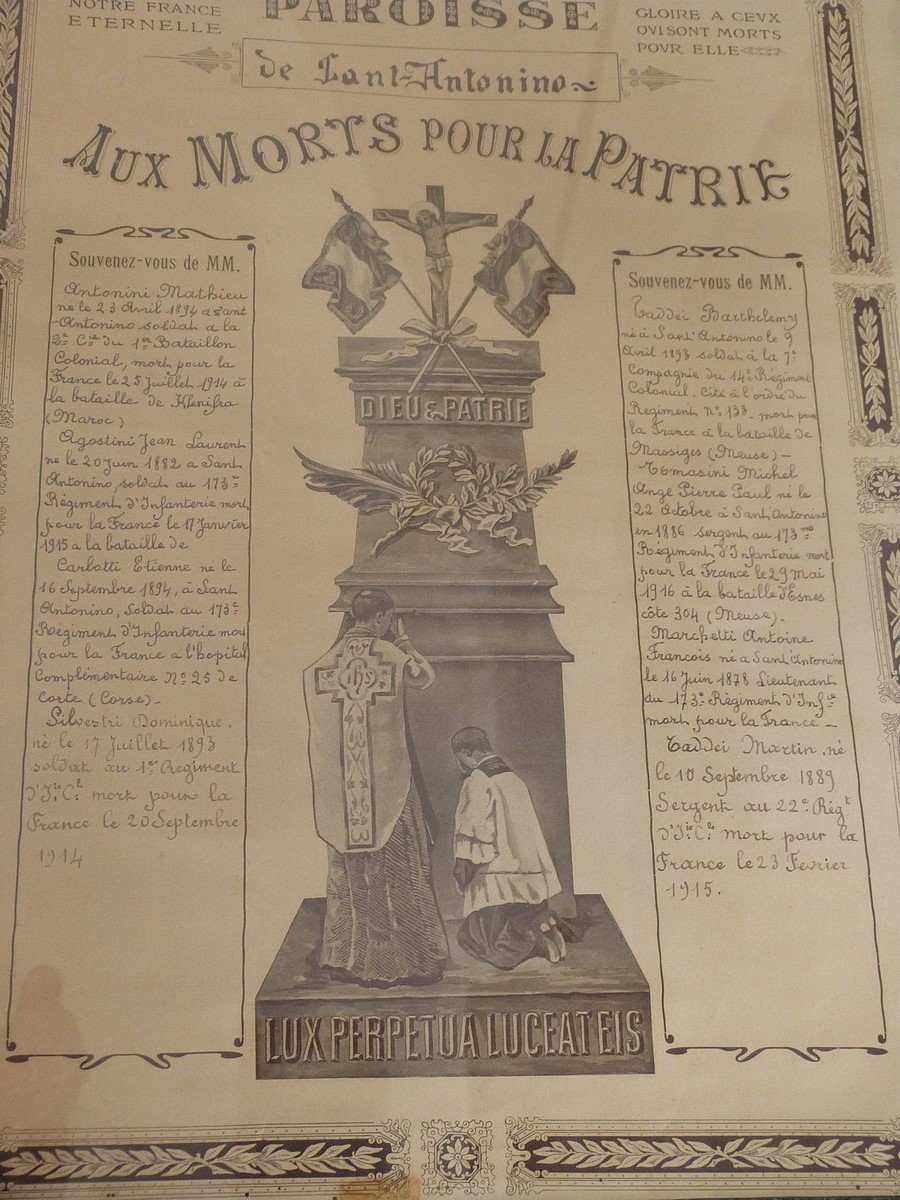 NOTRE FRANCE
ETERNELLE
PAROISSE
GLOIRE A CEVX
QVI SONT MORTS
POVR ELLE
de Sant-Antonino
AUX MORTS POUR LA PATRIE
Souvenez-vous de MM.
Antonini Mathieu
né le 23 Avril 1894 a Sant
-Antonino soldat a la
2e Cie du 1er Bataillon
Colonial, mort pour la
France le 25 Juillet 1914 à
la bataille de Khenifra
(Maroc)
Agostini Jean Laurent
né le 20 Juin 1882 a Sant
Antonino, soldat au 173e
Régiment d'Infanterie mort
pour la France le 17 Janvier
1915 a la bataille de
Carlotti Etienne né le
16 Septembre 1894, à Sant
Antonino, Soldat au 173e
Régiment d'Infanterie mort
pour la France a l'hopital
Complémentaire No 25 de
Corte (Corse)-
Silvestri Dominique,
né le 17 Juillet 1893
soldat au 1er Regiment
d'Iie Cle mort pour la
France le 20 Septembre
1914
DIEU & PATRIE
IHS
LUX PERPETUA LUCEAT EIS
Souvenez-vous de MM.
Taddei Barthelemy
né à Sant'Antonino le 9
Avril 1893 soldat à la 7e
Compagnie du 14e Régiment
Colonial. Cité à l'ordre du
Regiment No 138. mort pour
la France à la bataille de
Massiges (Meuse)-
Tomasini Michel
Ange Pierre Paul né le
22 Octobre à Sant Antonino
en 1886 sergent au 173me
Régiment d'Infanterie mort
pour la France le 29 Mai
1916 à la bataille d'Esnes
côte 304 (Meuse).
Marchetti Antoine
Francois né a Sant'Antonino
le 16 Juin 1878 Lieutenant
du 173e Régiment d'Infie
mort pour la France-
Taddei Martin, né
le 10 Septembre 1889
Sergent au 22e Régt
d'Iie Cle mort pour la
France le 23 Fevrier
1915.